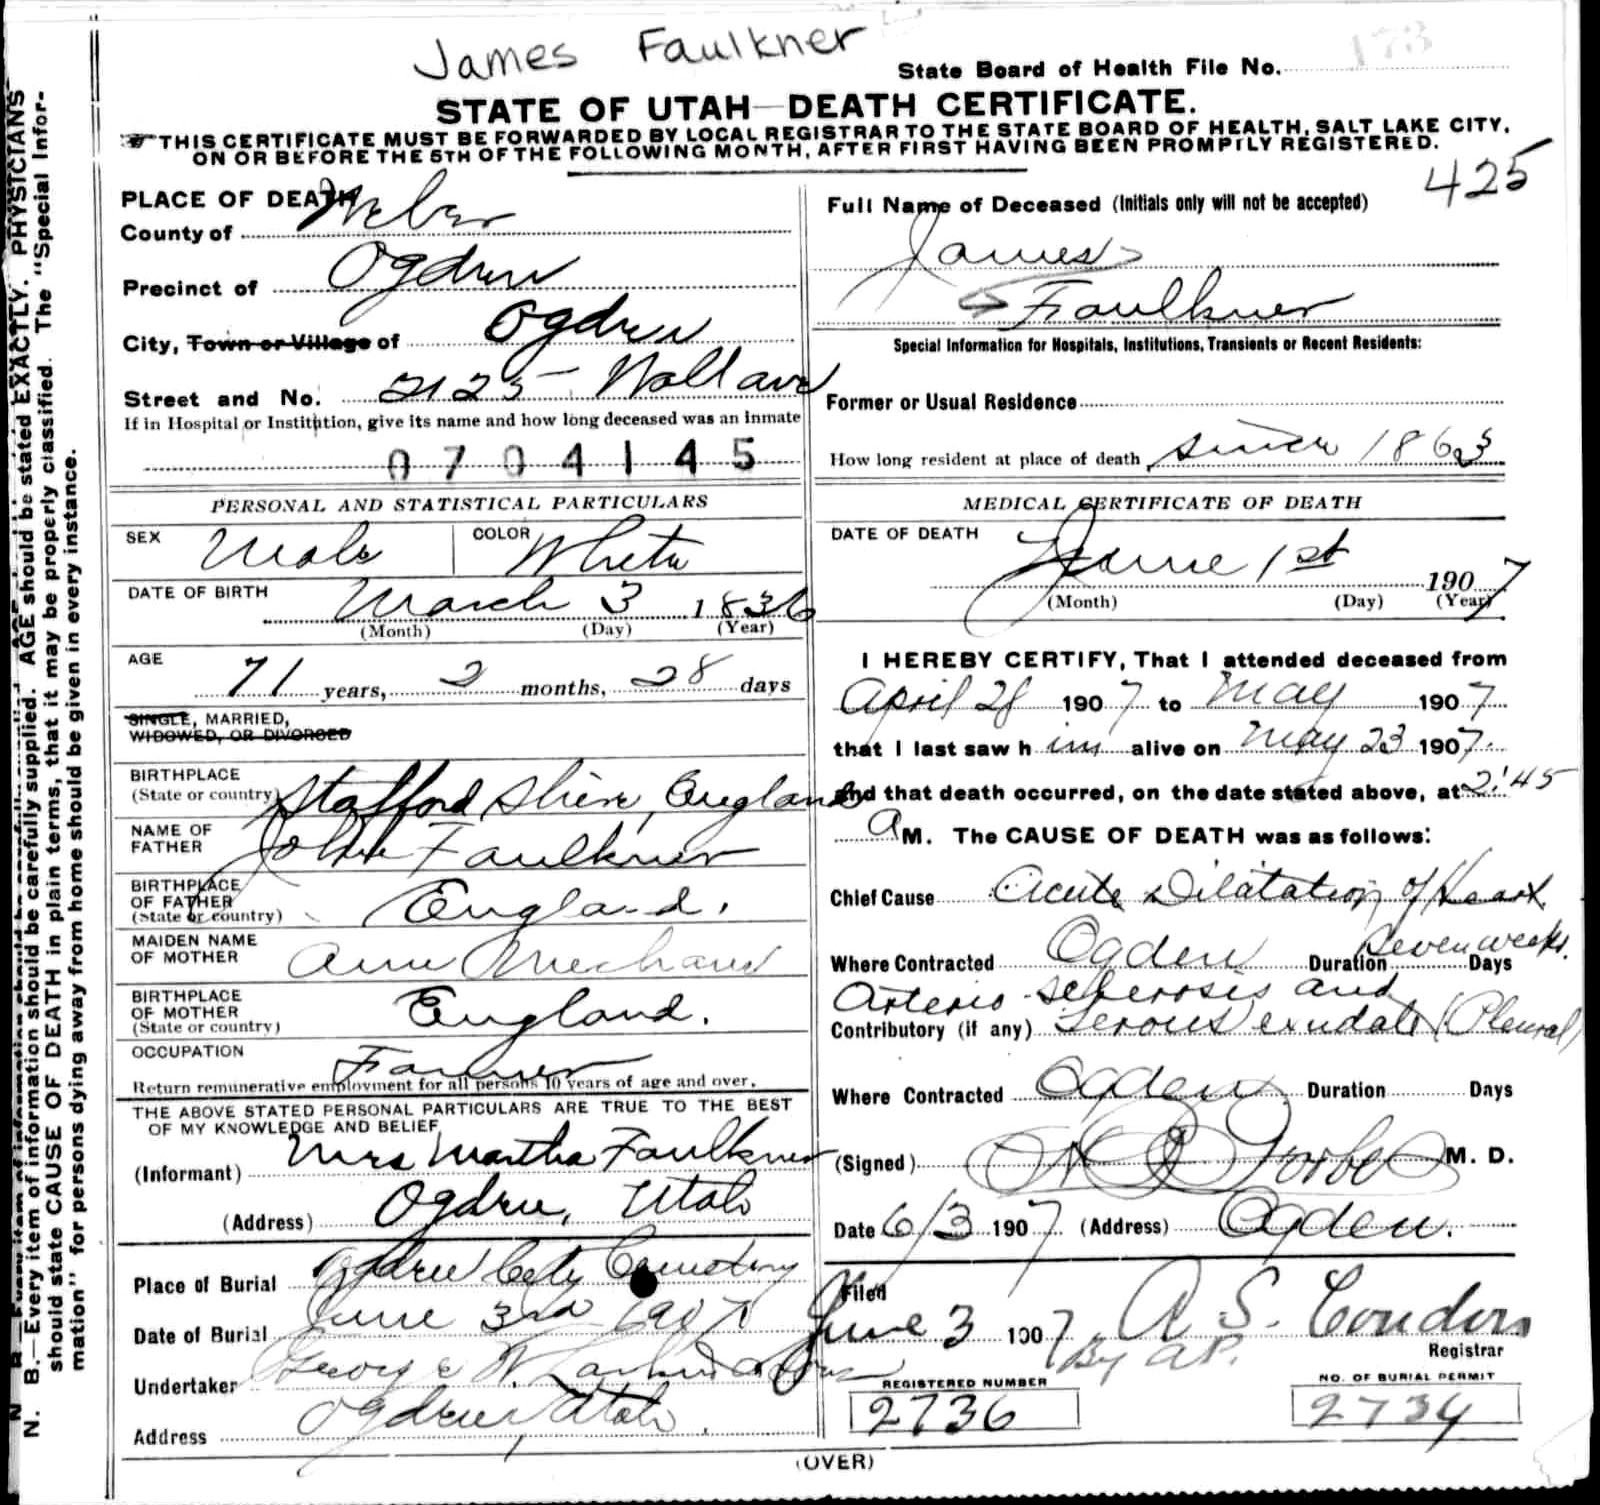 James Faulkner
173
State Board of Health File No.
STATE OF UTAH—DEATH CERTIFICATE.
THIS CERTIFICATE MUST BE FORWARDED BY LOCAL REGISTRAR TO THE STATE BOARD OF HEALTH, SALT LAKE CITY,
ON OR BEFORE THE 5TH OF THE FOLLOWING MONTH, AFTER FIRST HAVING BEEN PROMPTLY REGISTERED.
425
N. B.—Every item of information should be carefully supplied. AGE should be stated EXACTLY. PHYSICIANS
should state CAUSE OF DEATH in plain terms, that it may be properly classified. The "Special Infor-
mation" for persons dying away from home should be given in every instance.
PLACE OF DEATH
County of Weber
Precinct of Ogden
City, Town or Village of Ogden
Street and No. 2125 Wall ave
If in Hospital or Institution, give its name and how long deceased was an inmate
0704145
PERSONAL AND STATISTICAL PARTICULARS
SEX Male COLOR White
DATE OF BIRTH March 3 1836
(Month) (Day) (Year)
AGE 71 years, 2 months, 28 days
SINGLE, MARRIED,
WIDOWED, OR DIVORCED
BIRTHPLACE
(State or country) Stafford Shire, England
NAME OF
FATHER John Faulkner
BIRTHPLACE
OF FATHER
(State or country) England.
MAIDEN NAME
OF MOTHER Ann
BIRTHPLACE
OF MOTHER
(State or country) England.
OCCUPATION Farmer
Return remunerative employment for all persons 10 years of age and over.
THE ABOVE STATED PERSONAL PARTICULARS ARE TRUE TO THE BEST
OF MY KNOWLEDGE AND BELIEF
(Informant) Mrs Martha Faulkner
(Address) Ogden, Utah
Place of Burial Ogden City Cemetery
Date of Burial June 3rd 1907
Undertaker George W. Larkin & Sons
Address Ogden, Utah.
Full Name of Deceased (Initials only will not be accepted)
James
Faulkner
Special Information for Hospitals, Institutions, Transients or Recent Residents:
Former or Usual Residence
How long resident at place of death since 1863
MEDICAL CERTIFICATE OF DEATH
DATE OF DEATH
June 1st 1907
(Month) (Day) (Year)
I HEREBY CERTIFY, That I attended deceased from
April 28 1907 to May 1907
that I last saw him alive on May 23 1907.
and that death occurred, on the date stated above, at 2:45
A M. The CAUSE OF DEATH was as follows:
Chief Cause Acute Dilatation of Heart
Where Contracted Ogden Duration Seven weeks. Days
Arterio sclerosis and
Contributory (if any) Serous exudate (Pleural)
Where Contracted Ogden Duration Days
(Signed) Forbes M. D.
Date 6/3 1907 (Address) Ogden.
Filed
June 3 1907 A. S. Condon
By A.P. Registrar
REGISTERED NUMBER
2736
NO. OF BURIAL PERMIT
2734
(OVER)